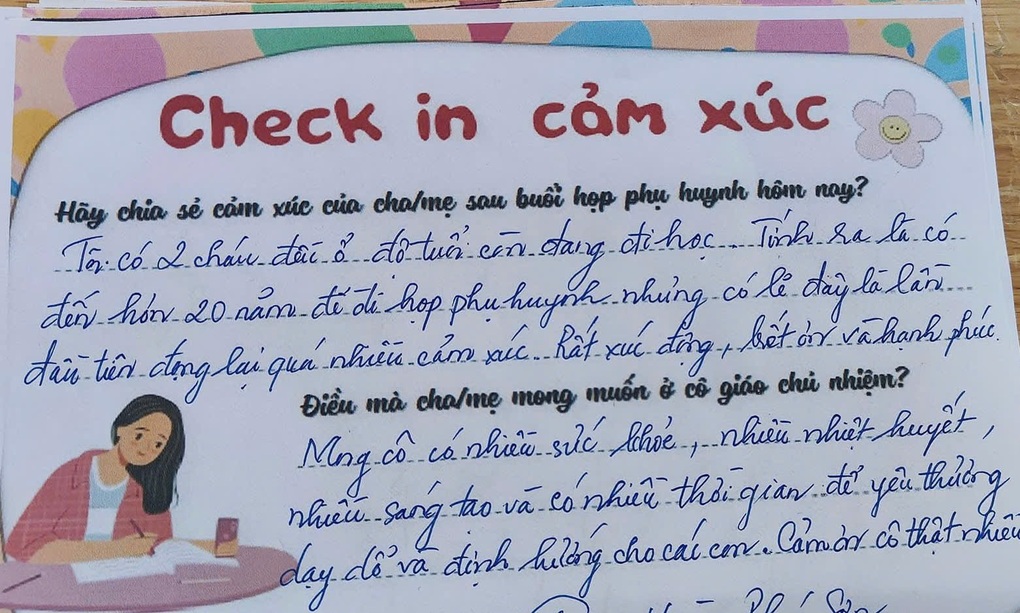 Check in cảm xúc
Hãy chia sẻ cảm xúc của cha/mẹ sau buổi họp phụ huynh hôm nay?
Tôi có 2 cháu đều ở độ tuổi còn đang đi học. Tính ra là có
đến hơn 20 năm để đi họp phụ huynh nhưng có lẽ đây là lần
đầu tiên đọng lại quá nhiều cảm xúc. Rất xúc động, biết ơn và hạnh phúc.
Điều mà cha/mẹ mong muốn ở cô giáo chủ nhiệm?
Mong cô có nhiều sức khỏe, nhiều nhiệt huyết,
nhiều sáng tạo và có nhiều thời gian để yêu thương
dạy dỗ và định hướng cho các con. Cảm ơn cô thật nhiều